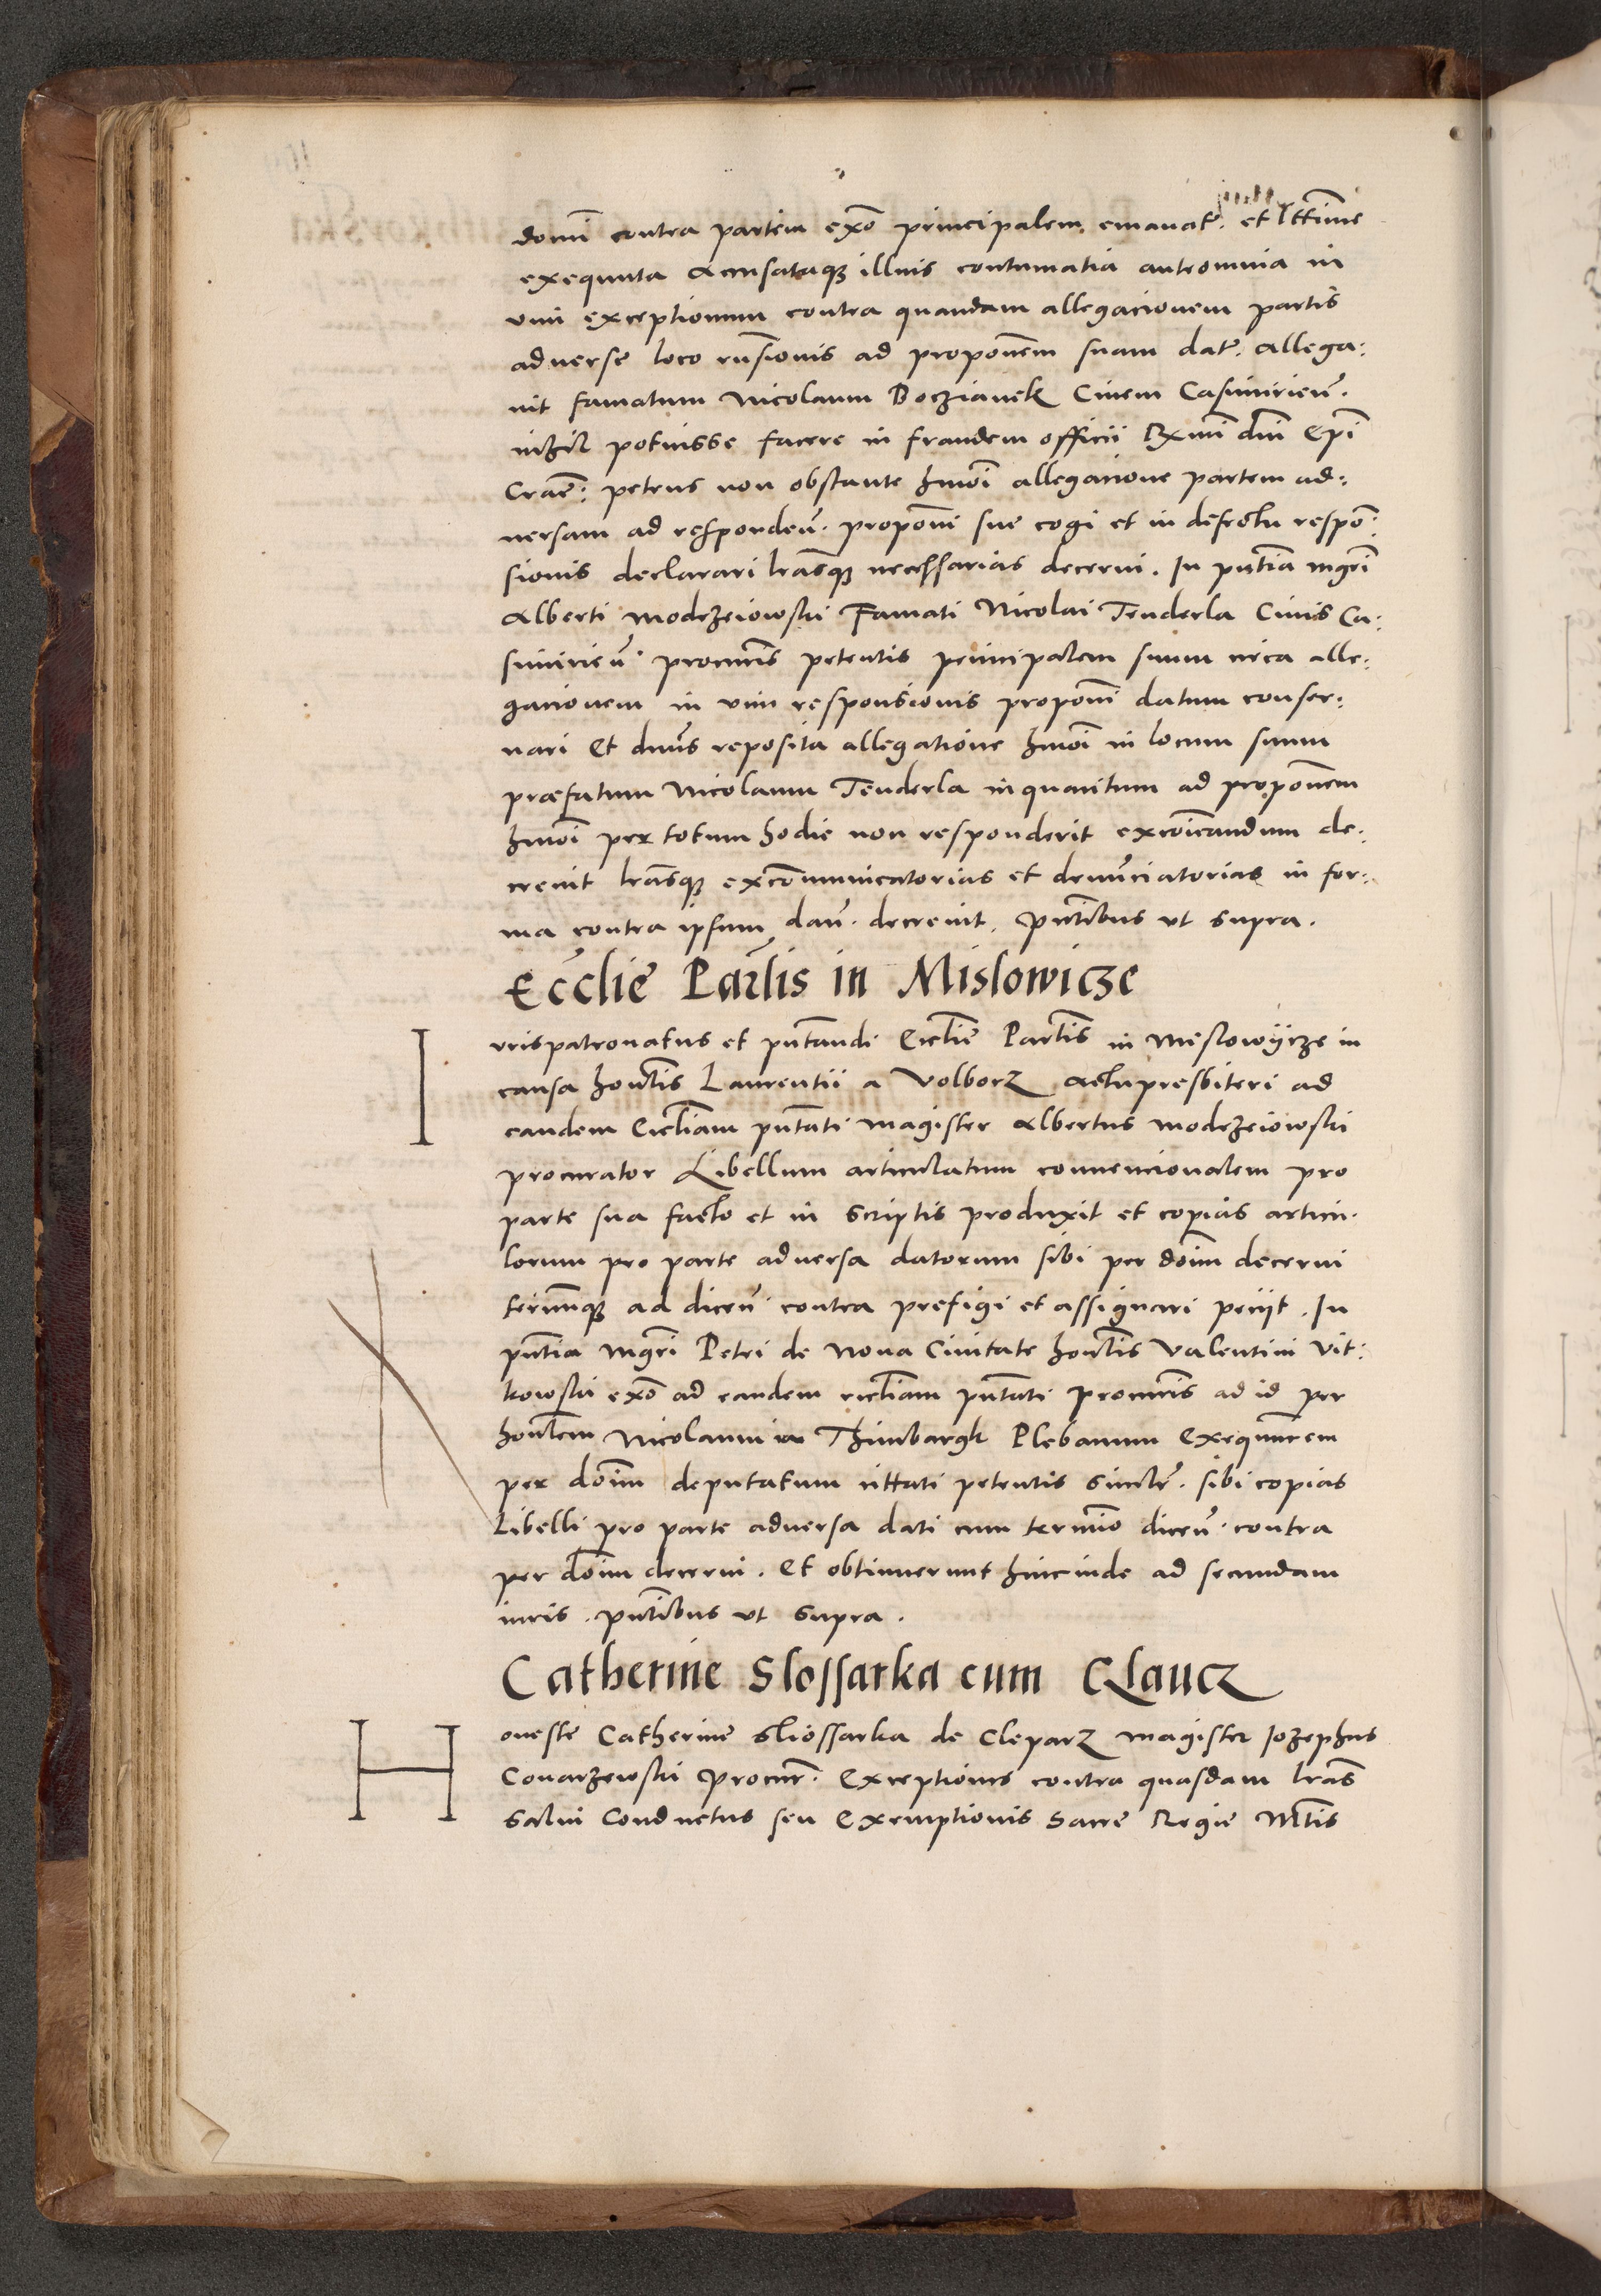 domi contra partem exo principalem emanat. et lttime
exequuta accusataque illius contumatia anteomnia in
vim exceptionum contra quandam allegacionem partis
adverse loco rnsionis ad proponem suam dat. allega:
vit famatum Nicolaum Boczianek Civem Casimirien.
nihil potuisse facere in fraudem officii Rxmi dni Epi
Craē: petens non obstante hmoi allegacione partem ad:
versam ad responden. proponi sue cogi et in defectu respo:
sionis declarari lrasque necessarias decerni. In pntia mgri
Alberti Modrzeiowski Famati Nicolai Tenderla Civis Ca:
simirien procuris petentis principalem suum circa alle:
gacionem in vim responsionis proponi datum conser:
vari Et dnus reposita allegatione hmoi in locum suum
præfatum Nicolaum Tenderla inquantum ad proponem
hmoi per totum hodie non responderit excoicandum de:
crevit lrasque excommunicatorias et denunciatorias in for:
ma contra ipsum dan. decrevit. pntibus ut supra.
Ecclie Parlis in Mislowicze
Iurispatronatus et pntandi Ecclie Parlis in Meslowijcze in
causa honlis Laurentii a Volborz actupresbiteri ad
eandem Eccliam pntati magister Albertus Modrzeiowski
procurator Libellum articulatum convencionalem pro
parte sua facto et in scriptis produxit et copias articu.
lorum pro parte adversa datorum sibi per doim decerni
terimque ad dicen contra prefigi et assignari peciit. In
pntia mgri Petri de Nova Civitate honlis Valentini Vit:
kowski exo ad eandem eccliam pntati procuris ad id per
honlem Nicolaum in Thimbargk Plebanum Exequutorem
per doim deputatum cittati petentis simlr. sibi copias
Libelli pro parte adversa dati cum termio dicen. contra
per doim decerni. Et obtinuerunt hincinde ad secundam
iuris. pntibus ut supra.
Catherine Slossarka cum Glaucz
Honeste Catherine sliossarka de Cleparz magister Jozephus
Conarzewski Procur. Exceptiones contra quasdam lras
Salvi Conductus seu Exemptionis Sacre Regie Mtis